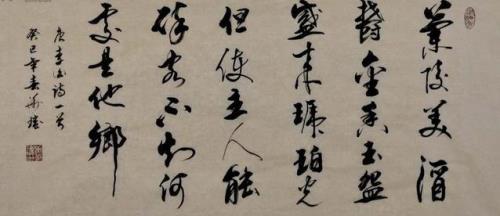 蘭陵美酒
鬱金香玉盌
盛来琥珀光
但使主人能
醉客不知何
處是他鄉
唐李白詩一首
癸巳年春